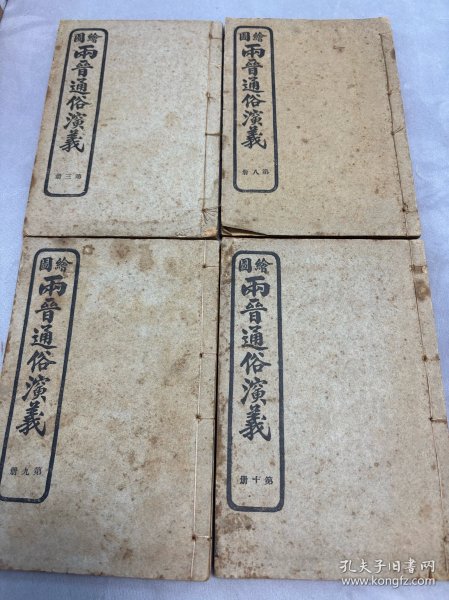 繪圖
兩晉通俗演義
第三册
繪圖
兩晉通俗演義
第八册
繪圖
兩晉通俗演義
第九册
繪圖
兩晉通俗演義
第十册
孔夫子旧书网
www.kongfz.com